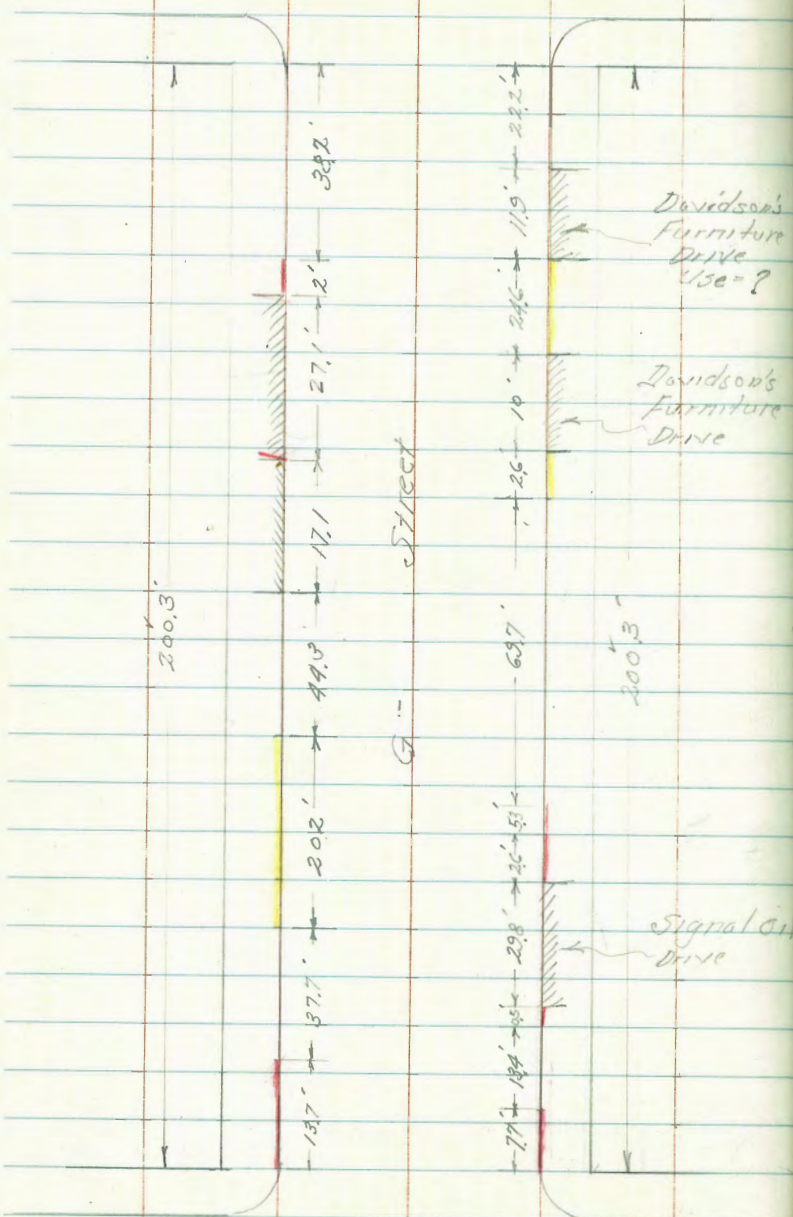 38.2'
2'
27.1'
17.1
44.3'
20.2'
37.7'
13.7'
200.3'
G -- Street
22.2'
11.9'
24.6'
10'
2.6'
69.7'
5.3'
2.6'
29.8'
0.5'
13.4'
7.7'
200.3'
Davidson's
Furniture
Drive
Use = ?
Davidson's
Furniture
Drive
Signal Oil
Drive